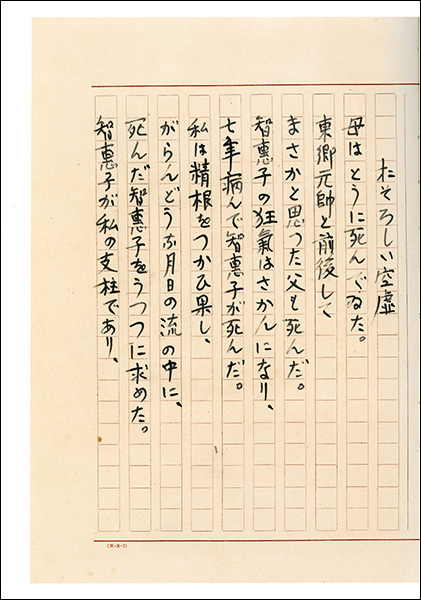 おそろしい空虚
母はとうに死んでゐた。
東郷元帥と前後して
まさかと思つた父も死んだ。
智惠子の狂氣はさかんになり、
七年病んで智惠子が死んだ。
私は精根をつかひ果し、
がらんどうな月日の流の中に、
死んだ智惠子をうつつに求めた。
智惠子が私の支柱であり、